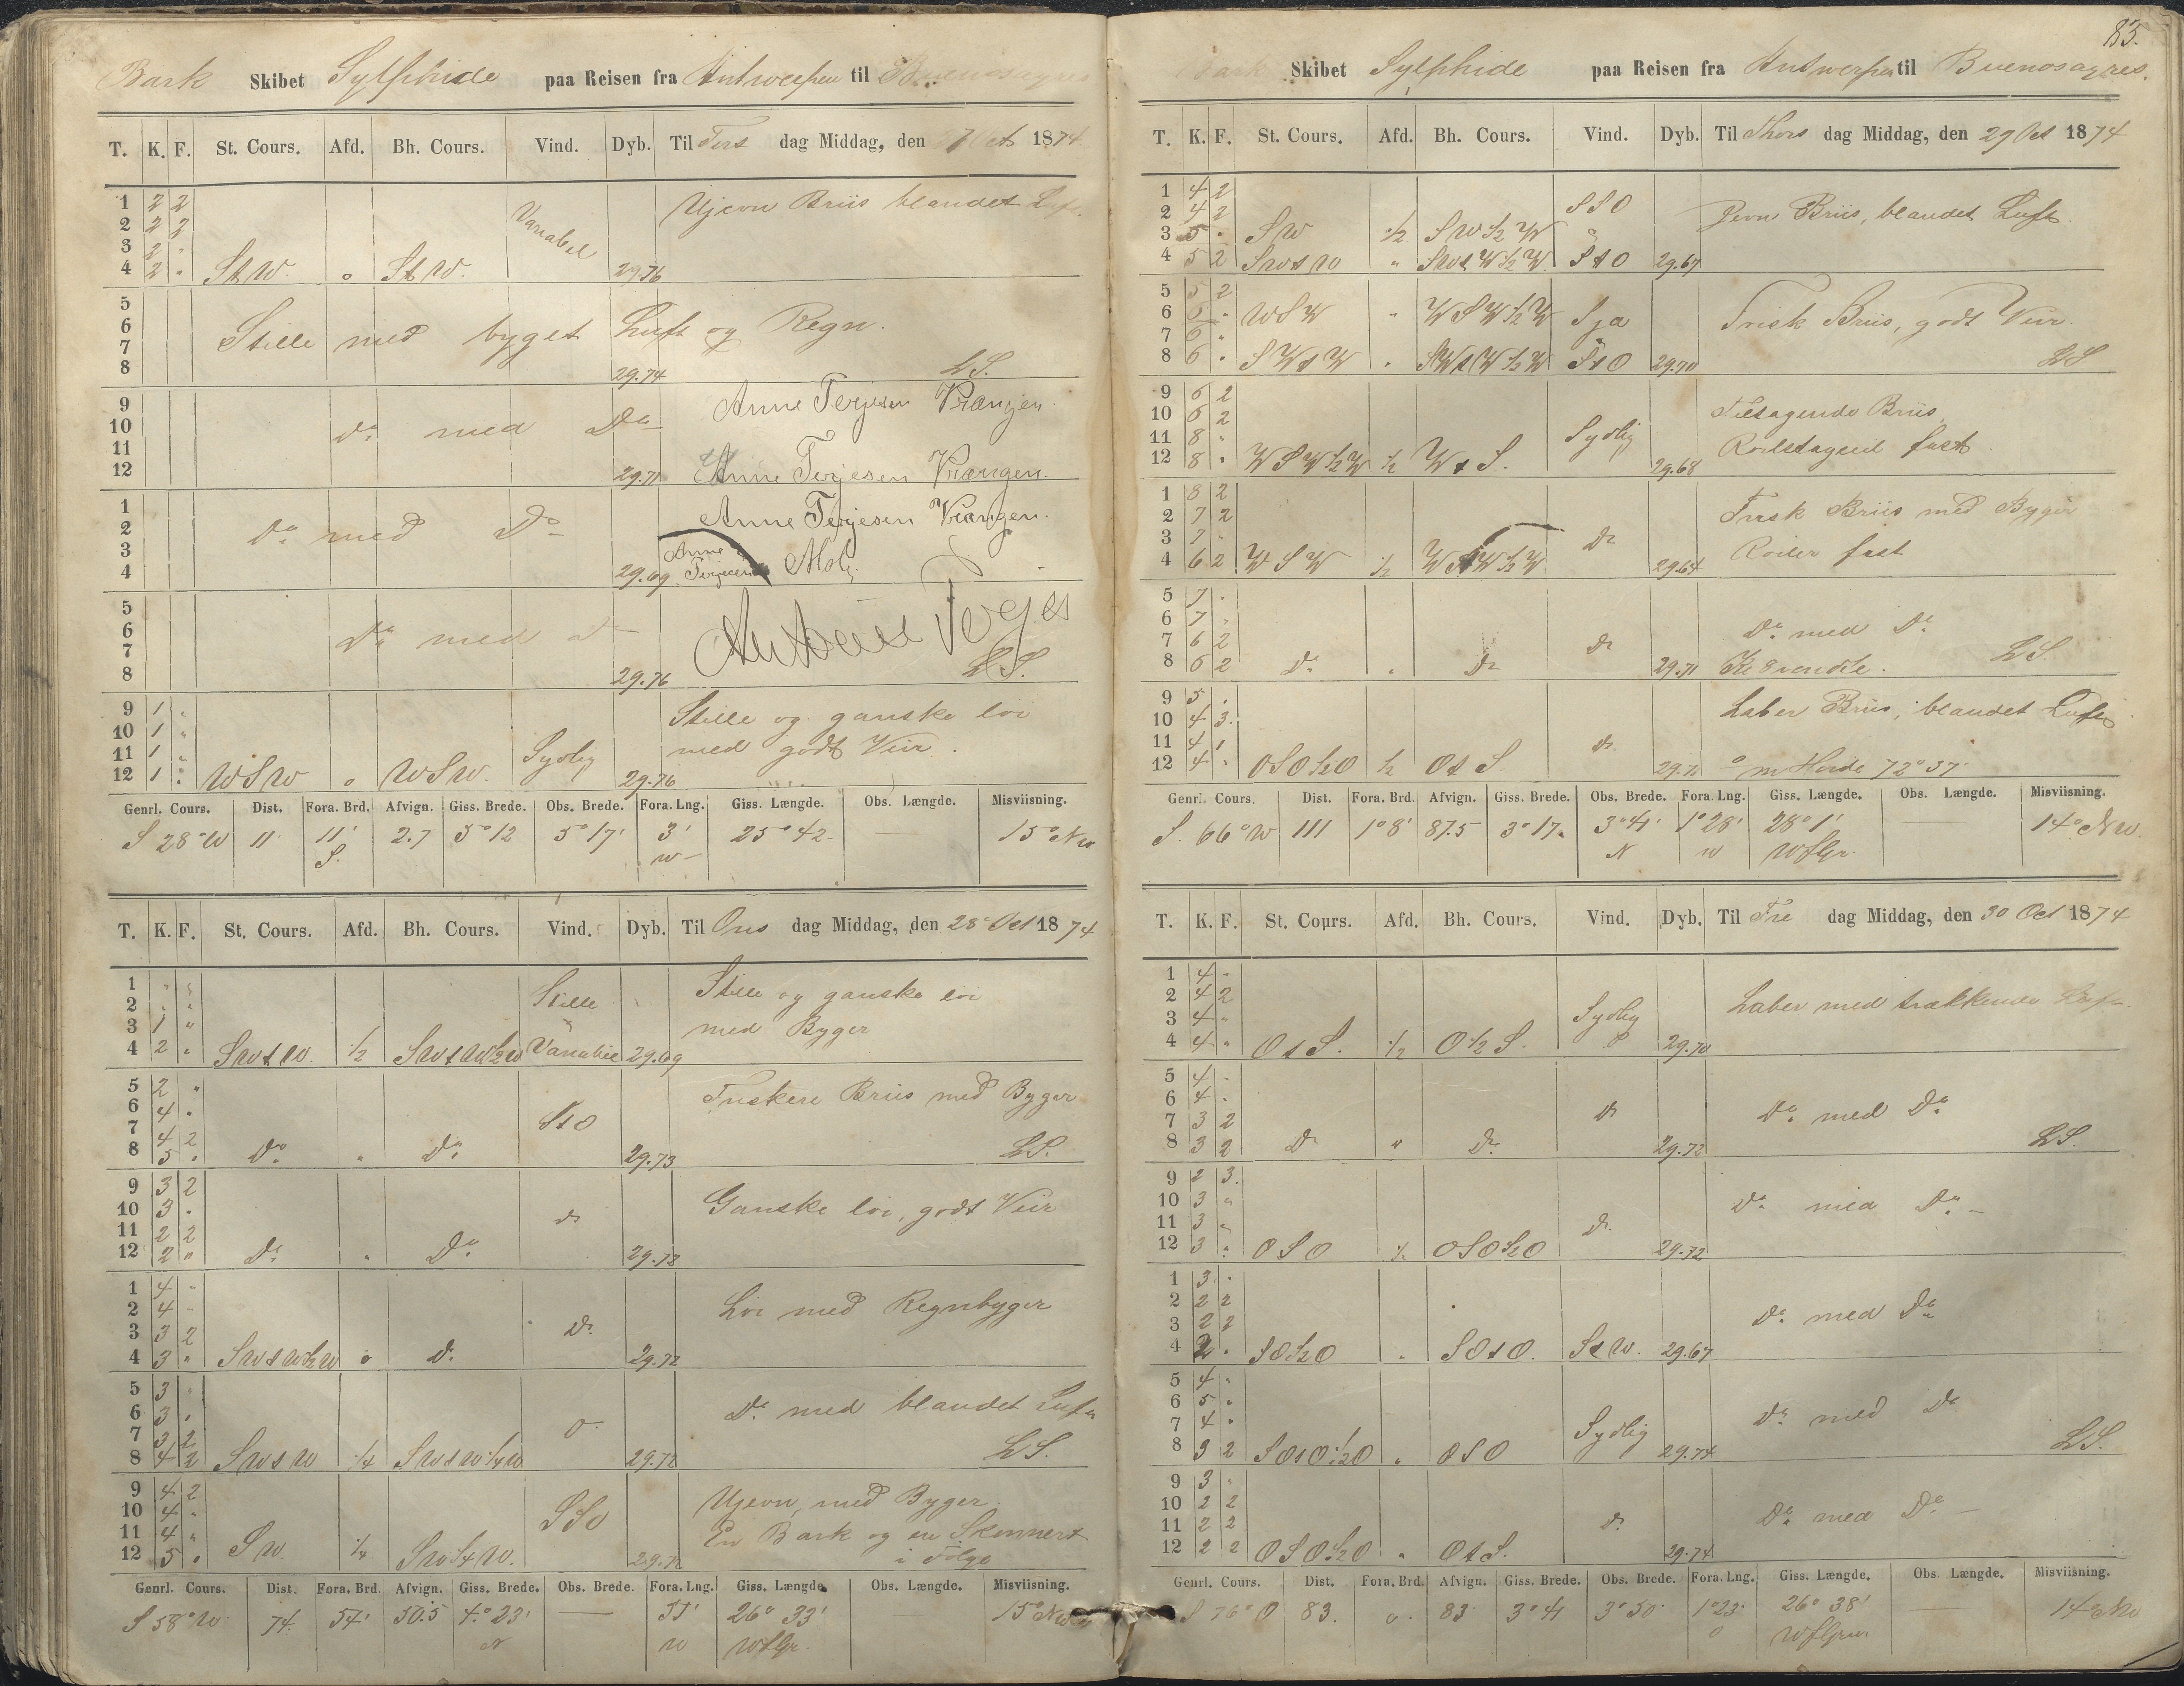 83.
Bark Skibet Sylphide paa Reisen fra Antwerpen til Buenosayres
T. K. F. St. Cours. Afd. Bh. Cours. Vind. Dyb. Til Tirs dag Middag, den 27 Oct 1874
1 2 2 Ujevn Briis blandet Luft.
2 2 2 Variabel
3 2 "
4 2 " StW. o StW. 29.76
5
6 Stille med byget Luft og Regn.
7
8 29.74 LS.
9 Anne Terjesen Vrængen.
10 Do med Do
11
12 29.71 Anne Terjesen Vrængen.
1 Anne Terjesen Vrangen.
2 Do med Do
3 Anne
4 29.69 Terjesen
5
6 Do med Do
7
8 29.76 LS.
9 1 " Stille og ganske løi
10 1 " med godt Veir.
11 1 " Sydlig
12 1 " WSW o WSW. 29.76
Genrl. Cours. Dist. Fora. Brd. Afvign. Giss. Brede. Obs. Brede. Fora. Lng. Giss. Længde. Obs. Længde. Misviisning.
S 28° W 11 11' 2.7 5° 12 5° 17' 3' 25° 42 15° NW
S. W
T. K. F. St. Cours. Afd. Bh. Cours. Vind. Dyb. Til Ons dag Middag, den 28 Oct 1874
1 " " Stille Stille og ganske løi
2 " " med Byger
3 1 "
4 2 " SWtW. 1/2 SWtW1/2W Variabel 29.69
5 2 " Friskere Briis med Byger
6 4 " StO
7 4 2
8 5 " Do " Do 29.73 LS.
9 3 2 Ganske løi, godt Veir
10 3 " do
11 2 2
12 2 " Do " Do 29.73
1 4 " Løi med Regnbyger
2 4 "
3 3 2 Do
4 3 " SWtW1/2W o Do 29.72
5 3 " Do med blandet Luft
6 3 "
7 3 2
8 4 2 SWtW 1/4 SWtW1/4W 29.72 LS.
9 4 2 Ujevn, med Byger.
10 4 " SSO En Bark og en Skonnert
11 4 " i Følge
12 5 " SW. 1/4 SW1/4W. 29.72
Genrl. Cours. Dist. Fora. Brd. Afvign. Giss. Brede. Obs. Brede. Fora. Lng. Giss. Længde. Obs. Længde. Misviisning.
S 58° W 74 54' 50.5 4° 23' — 51' 26° 33' 15° NW
N W WfGr.
Bark Skibet Sylphide paa Reisen fra Antwerpen til Buenosayres.
T. K. F. St. Cours. Afd. Bh. Cours. Vind. Dyb. Til Thors dag Middag, den 29 Oct 1874
1 4 2 SSO Jevn Briis, blandet Luft.
2 4 2
3 5 " SW 1/2 SW1/2W
4 5 2 SWtW " SWtW1/2W StO 29.67
5 5 2
6 6 " WSW " WSW1/2W Frisk Briis, godt Veir.
7 6 "
8 6 " SWtW " SWtW1/2W StO 29.70 LS
9 6 2 Tiltagende Briis,
10 6 2
11 8 " Sydlig
12 8 " WSW1/2W 1/2 WtS. 29.68
1 8 2 Frisk Briis med Byger
2 7 2
3 7 " Do Røiler fast
4 6 2 WSW 1/2 29.64
5 7 "
6 7 " Do med Do
7 6 2 Do
8 6 2 Do " Do 29.71 LS
9 5 " Laber Briis, blandet Luft
10 4 3.
11 4 1 Do
12 4 " OSO1/2O 1/2 OtS
Genrl. Cours. Dist. Fora. Brd. Afvign. Giss. Brede. Obs. Brede. Fora. Lng. Giss. Længde. Obs. Længde. Misviisning.
S. 66° W 111 1° 8' 87.5 3° 17 3° 41' 1° 28' 28° 1' — 14° NW.
N W WfGr.
T. K. F. St. Cours. Afd. Bh. Cours. Vind. Dyb. Til Fre dag Middag, den 30 Oct 1874
1 4 " Laber med trækkende Luft
2 4 2
3 4 " Sydlig
4 4 " OtS. 1/2 O1/2S. 29.70
5 4 "
6 4 " Do Do med Do
7 3 2
8 3 2 Do " Do 29.72 LS.
9 2 3.
10 3 " Do med Do
11 3 " Do
12 3 " OSO 1/2 OSO1/2O 29.72
1 3 "
2 2 2 Do med Do
3 2 2
4 2 " SO1/2O " SOtO. StW. 29.67
5 4 "
6 5 " Do med Do
7 4 " Sydlig
8 3 2 SOtO1/2O " OSO 29.74 LS.
9 3 "
10 2 2 Do med Do
11 2 2 Do
12 2 2 OSO1/2O " OtS. 29.74
Genrl. Cours. Dist. Fora. Brd. Afvign. Giss. Brede. Obs. Brede. Fora. Lng. Giss. Længde. Obs. Længde. Misviisning.
S 76° O 83. o 83 3° 41 3° 50' 1° 23' 26° 38' 14° NW
O WfGrw.